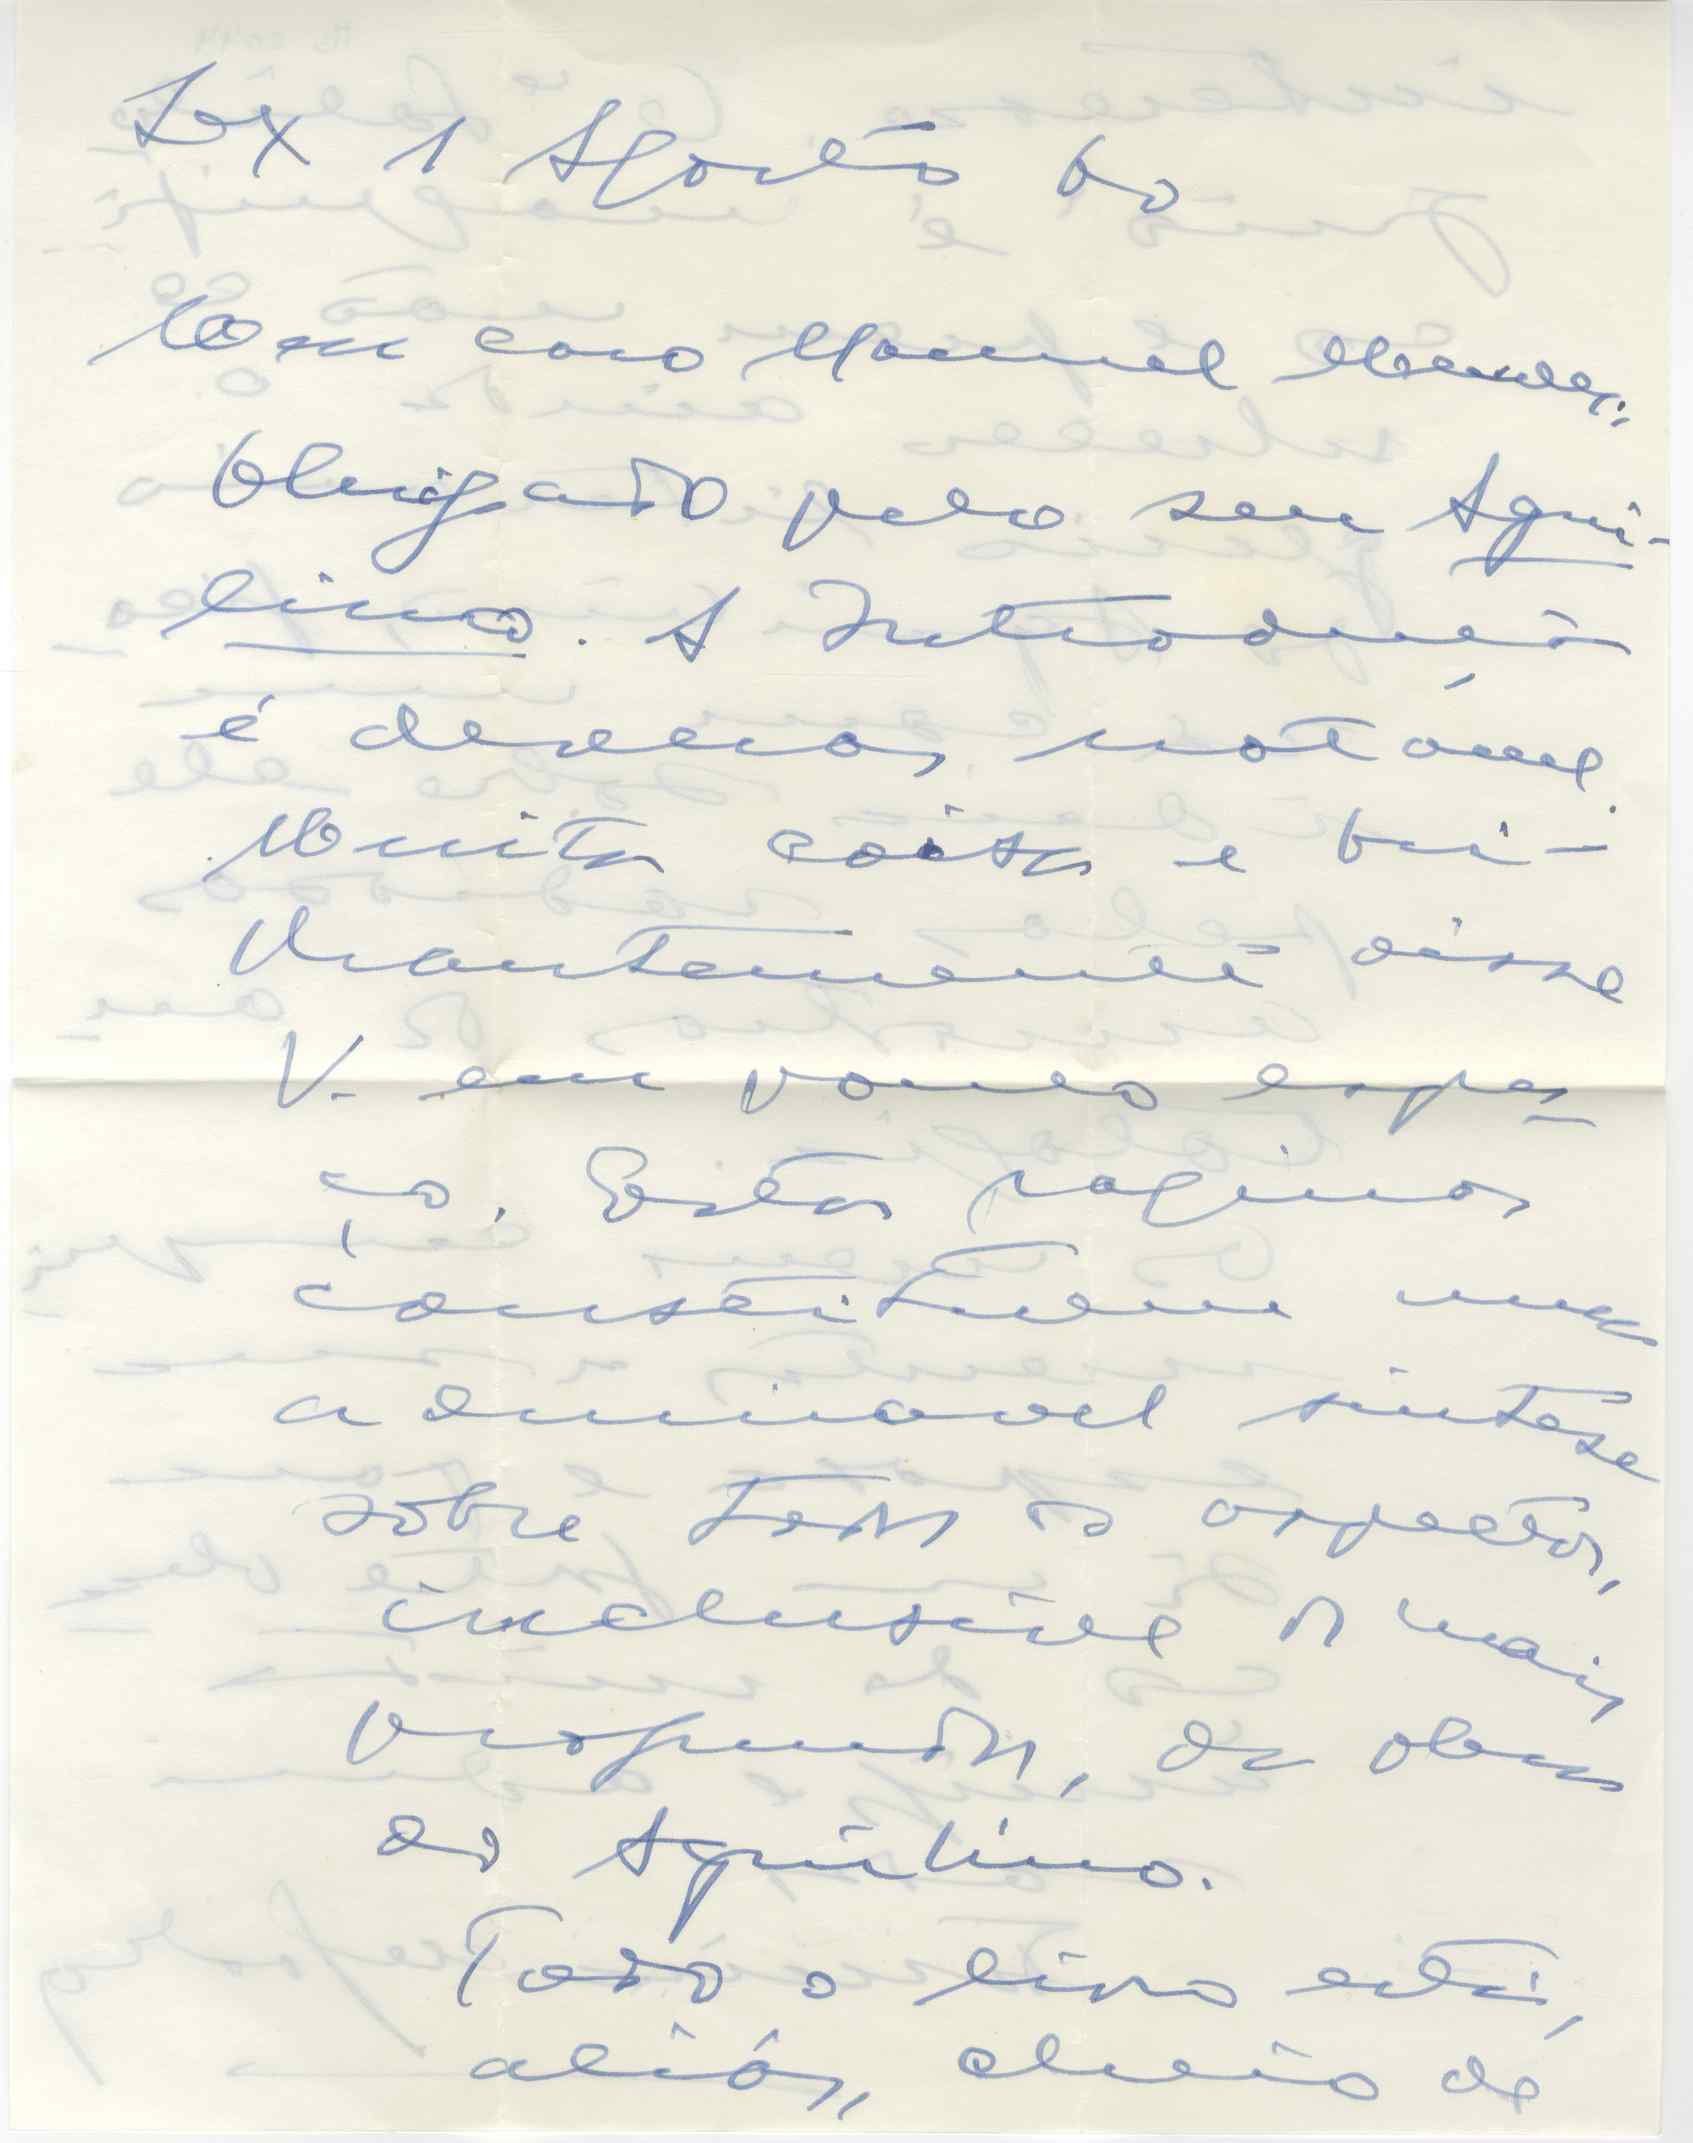 Lx 1 Agosto 60
Meu caro Manuel Mendes:
Obrigado pelo seu Aqui-
lino. A Introdução
é deveras notável.
Muita coisa e bri-
lhantemente disse
V. em pouco espa-
ço. Estas paginas
constituem uma
admiravel síntese
sôbre todos os aspectos,
inclusive os mais
profundos, da obra
do Aquilino.
Todo o livro está,
aliás, cheio de